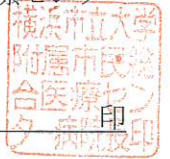 横浜市立大学
附属市民総
合医療セン
ター病院長印
印